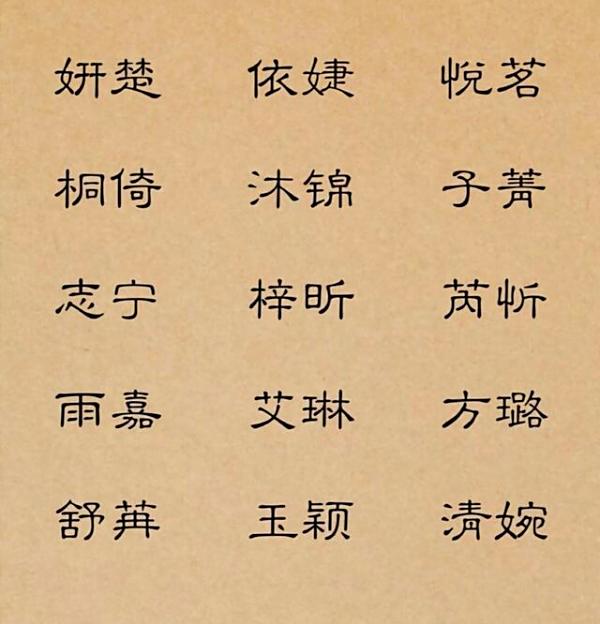 妍楚 依婕 悦茗
桐倚 沐锦 子菁
志宁 梓昕 芮忻
雨嘉 艾琳 方璐
舒苒 玉颖 清婉